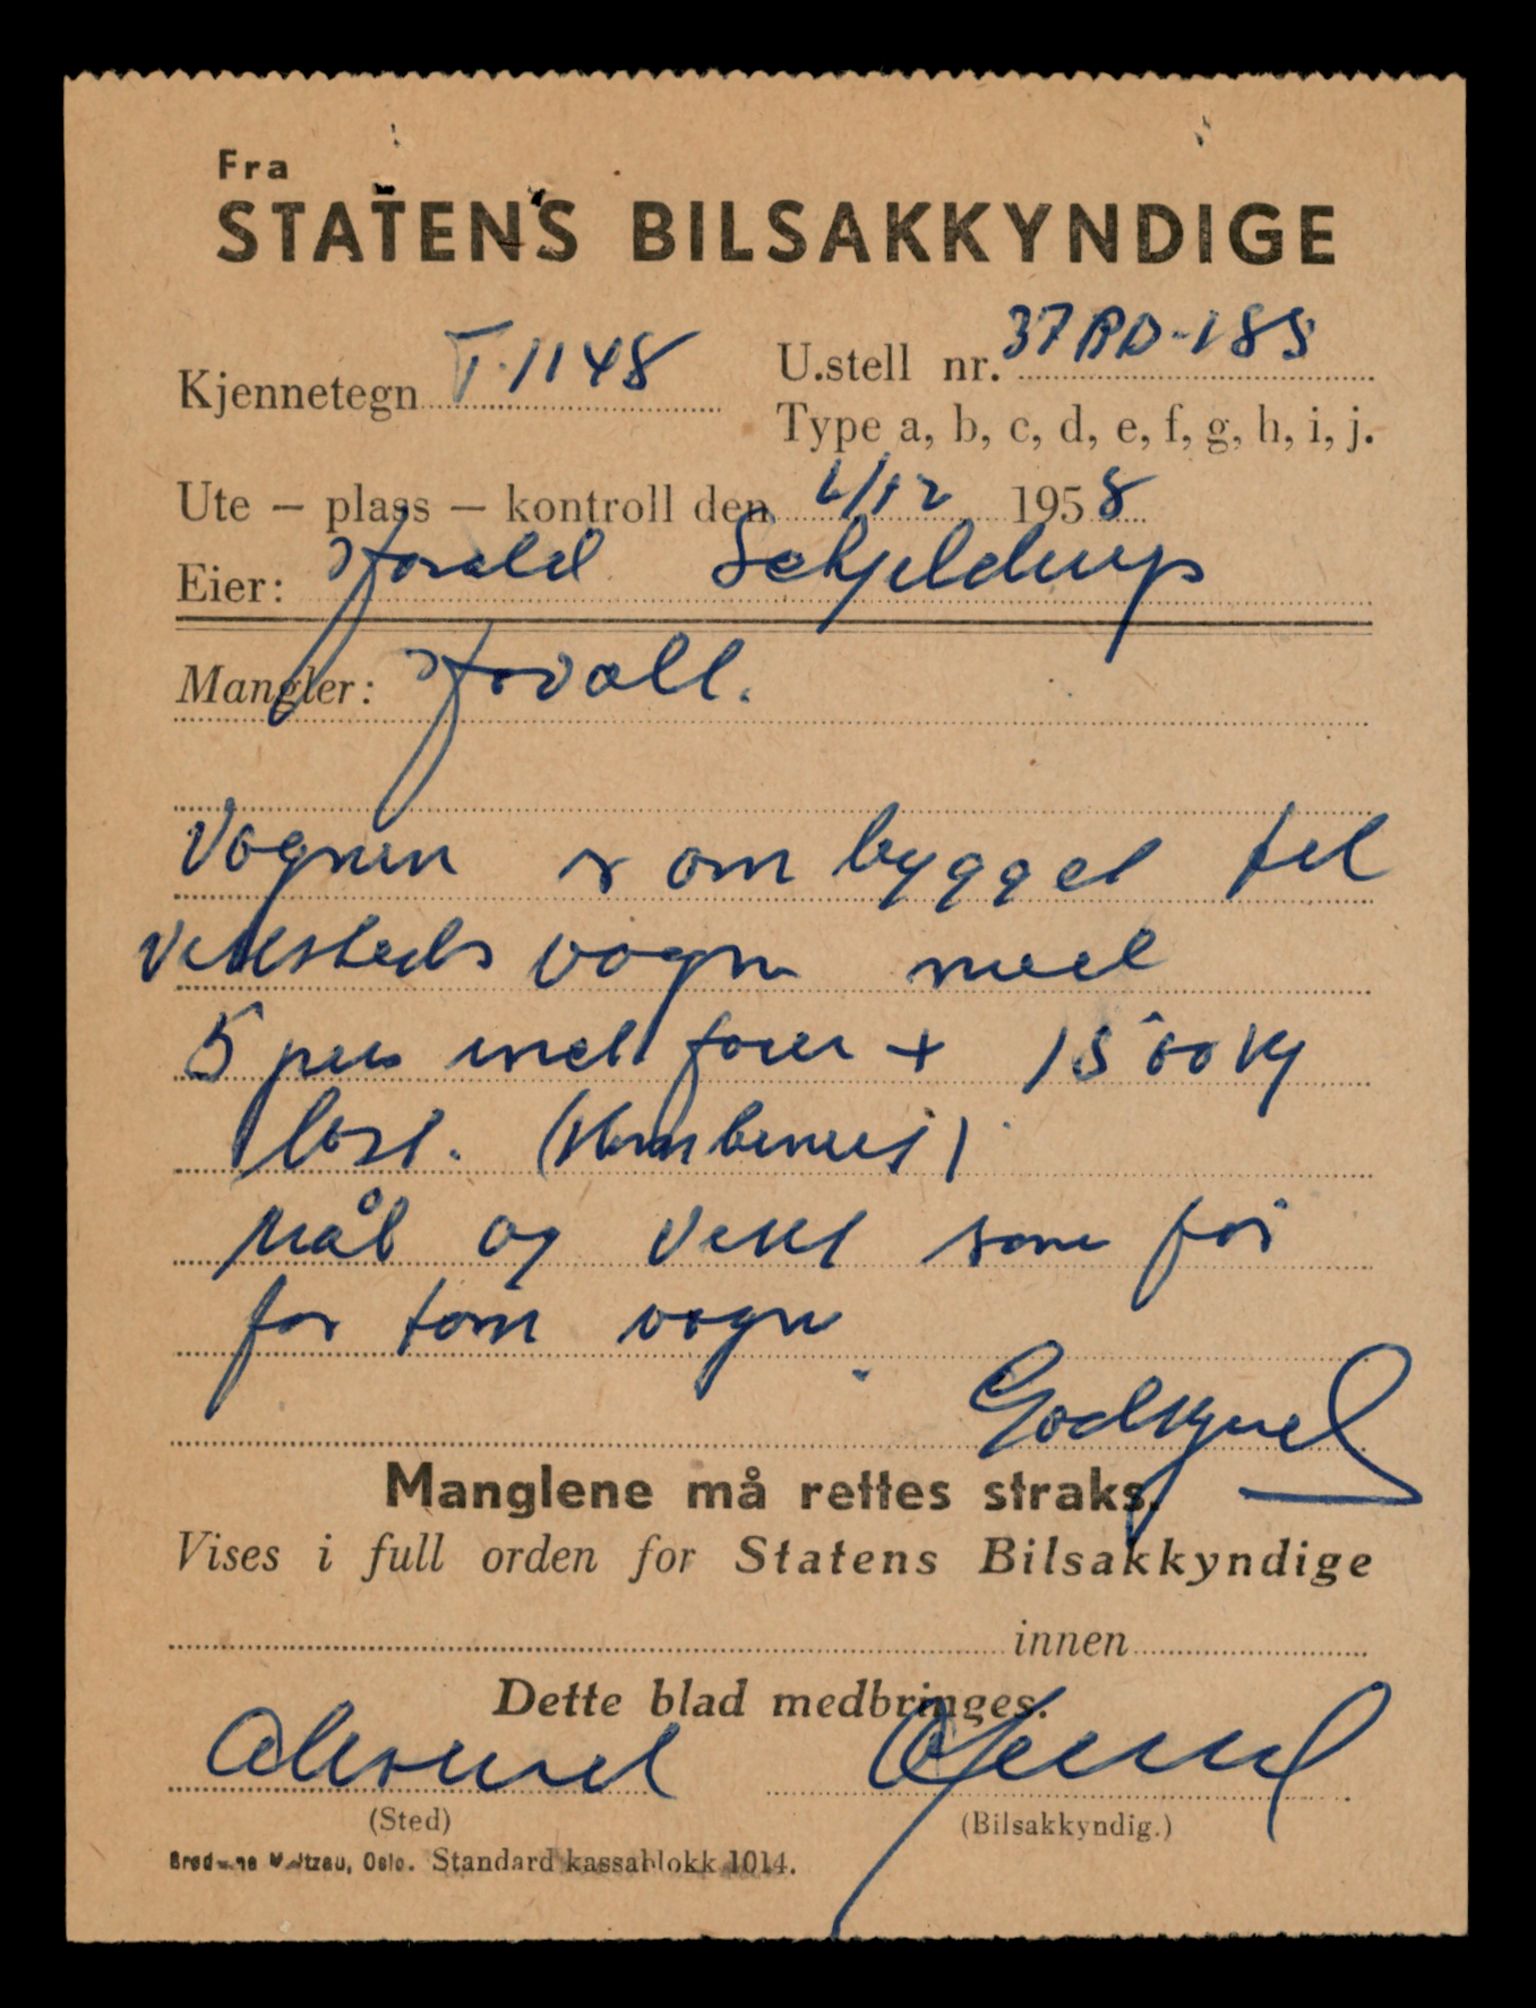 Fra
STATENS BILSAKKYNDIGE
Kjennetegn T-1148
U.stell nr. 37BD-188
Type a, b, c, d, e, f, g, h, i, j.
Ute – plass – kontroll den 1/12 1958
Eier: Harald Schjelderup
Mangler: Hovoll.
Vognen er ombygget til
verksteds vogn med
5 pers incl fører + 1500 kg
last. (Kombinert)
Mål og vekt som før
for tom vogn.
Godkjent
Manglene må rettes straks.
Vises i full orden for Statens Bilsakkyndige
innen
Dette blad medbringes.
(Sted)
(Bilsakkyndig.)
Brødrene Waitzau, Oslo. Standard kassablokk 1014.